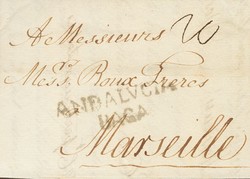 A Messieurs
Mess.rs Roux Freres
ANDALVCIA
Marseille